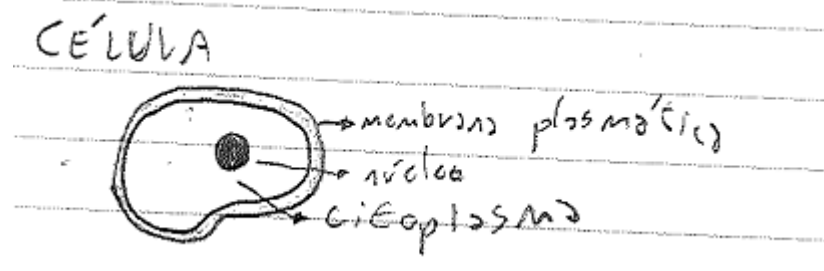 CÉLULA
membrana plasmática
núcleo
citoplasma